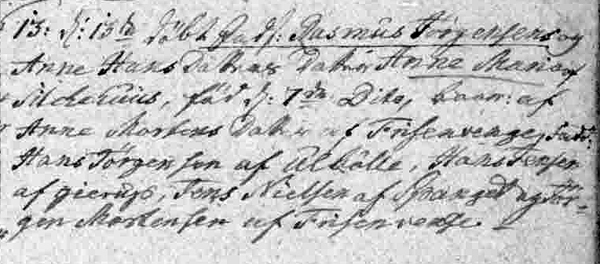 13: d: 13de döbt Gadf: Rasmus Jørgensens og
Anne Hans Datters Datter Anne Maria af
, föd d: 7de Dito, baar: af
Anne Mortens Datter af Frisenvenge, Fad:
Hans Jørgensen af Albølle, Hans Jensen
af gierup, Jens Nielsen af Spranget og Jör-
gen Mortensen af Frisenvenge.